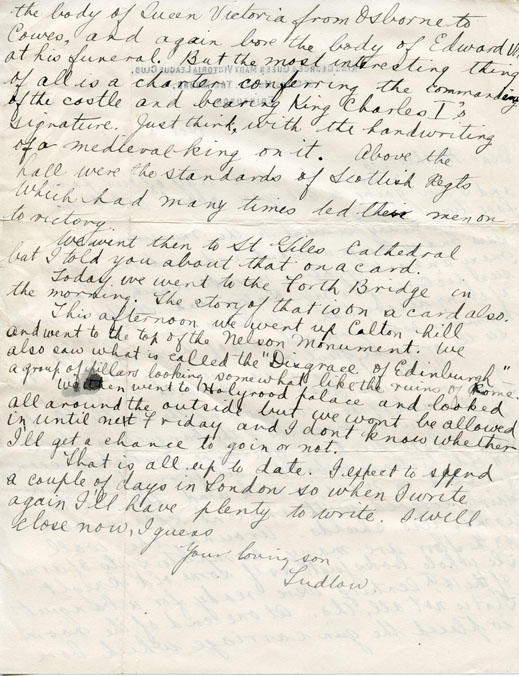 the body of Queen Victoria from Osborne to
Cowes, and again bore the body of Edward VII
at his funeral. But the most interesting thing
of all is a charter conferring the commanding
of the castle and bearing King Charles I's
signature. Just think, with the handwriting
of a medieval king on it. Above the
hall were the standards of Scottish Regts
which had many times led their men on
to victory.
We went then to St Giles Cathedral
but I told you about that on a card.
Today we went to the Forth Bridge in
the morning. The story of that is on a card also.
This afternoon we went up Calton hill
and went to the top of the Nelson Monument. We
also saw what is called the "Disgrace of Edinburgh"
a group of pillars looking somewhat like the ruins of Rome.
We then went to Holyrood palace and looked
all around the outside but we wont be allowed
in until next Friday and I don't know whether
I'll get a chance to go in or not.
That is all up to date. I expect to spend
a couple of days in London so when I write
again I'll have plenty to write. I will
close now, I guess
Your loving son
Ludlow